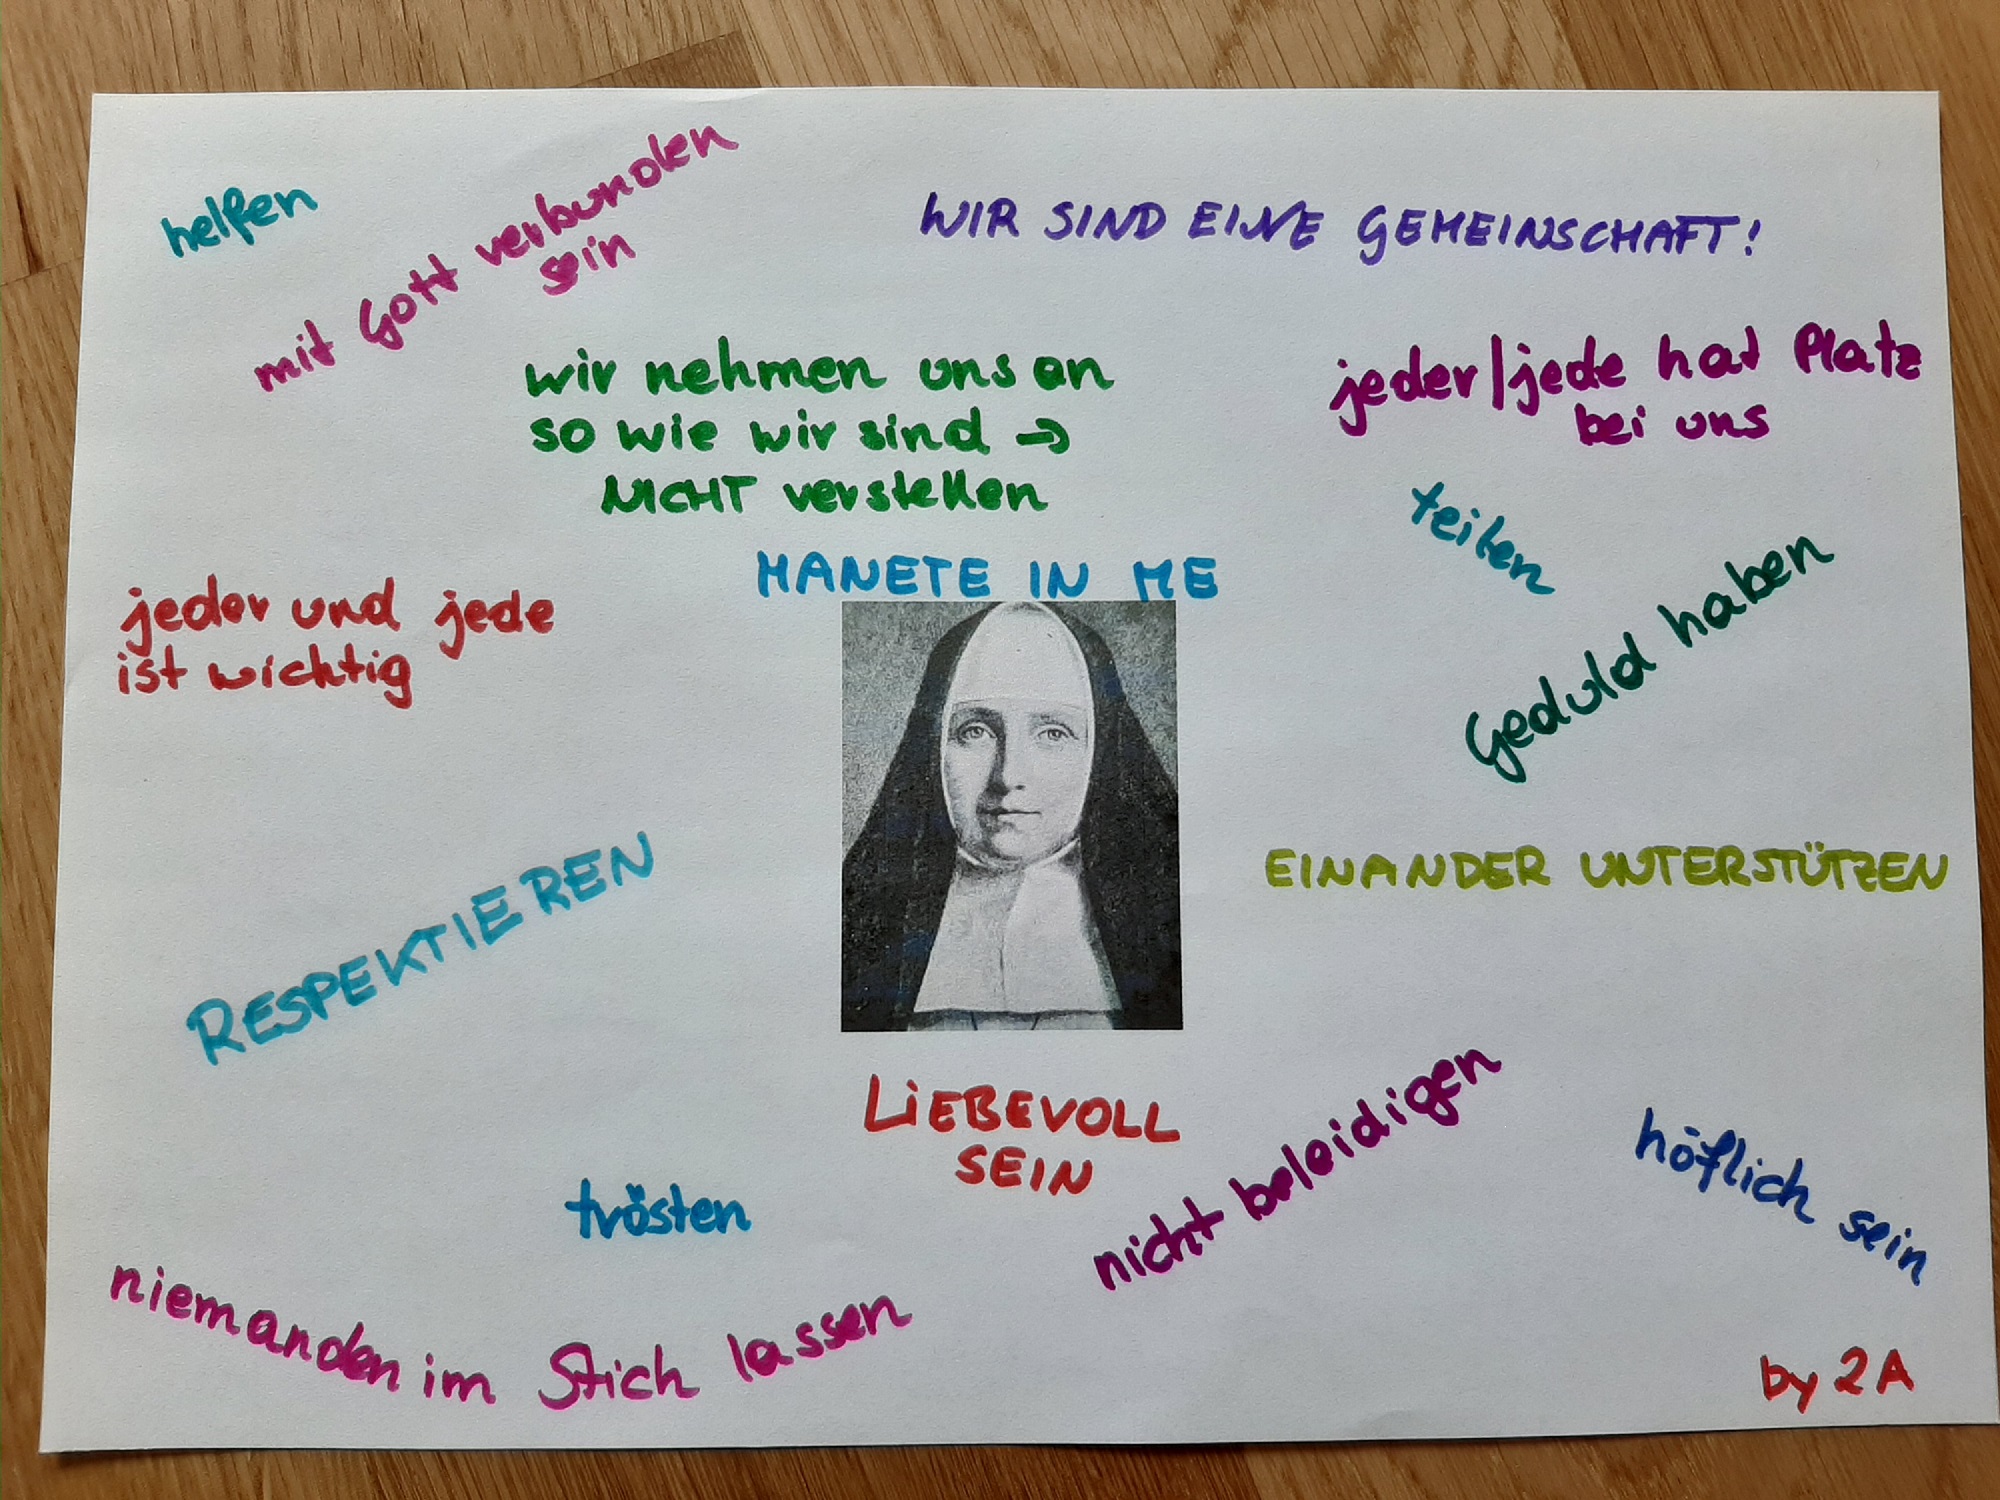 helfen
mit Gott verbunden
sein
WIR SIND EINE GEMEINSCHAFT!
wir nehmen uns an
so wie wir sind →
NICHT verstellen
jeder/jede hat Platz
bei uns
teilen
Geduld haben
MANETE IN ME
jeder und jede
ist wichtig
EINANDER UNTERSTÜTZEN
RESPEKTIEREN
LIEBEVOLL
SEIN
nicht beleidigen
höflich sein
trösten
niemanden im Stich lassen
by 2A